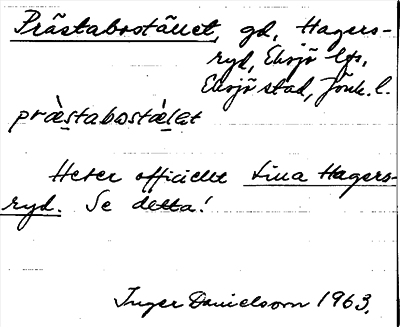 Prästabostället, gd, Hagers-
ryd, Eksjö lfs,
Eksjö stad, Jönk. l.
præ̀stabostæ̀let
Heter officiellt Lilla Hagers-
ryd. Se detta!
Inger Danielsson 1963.